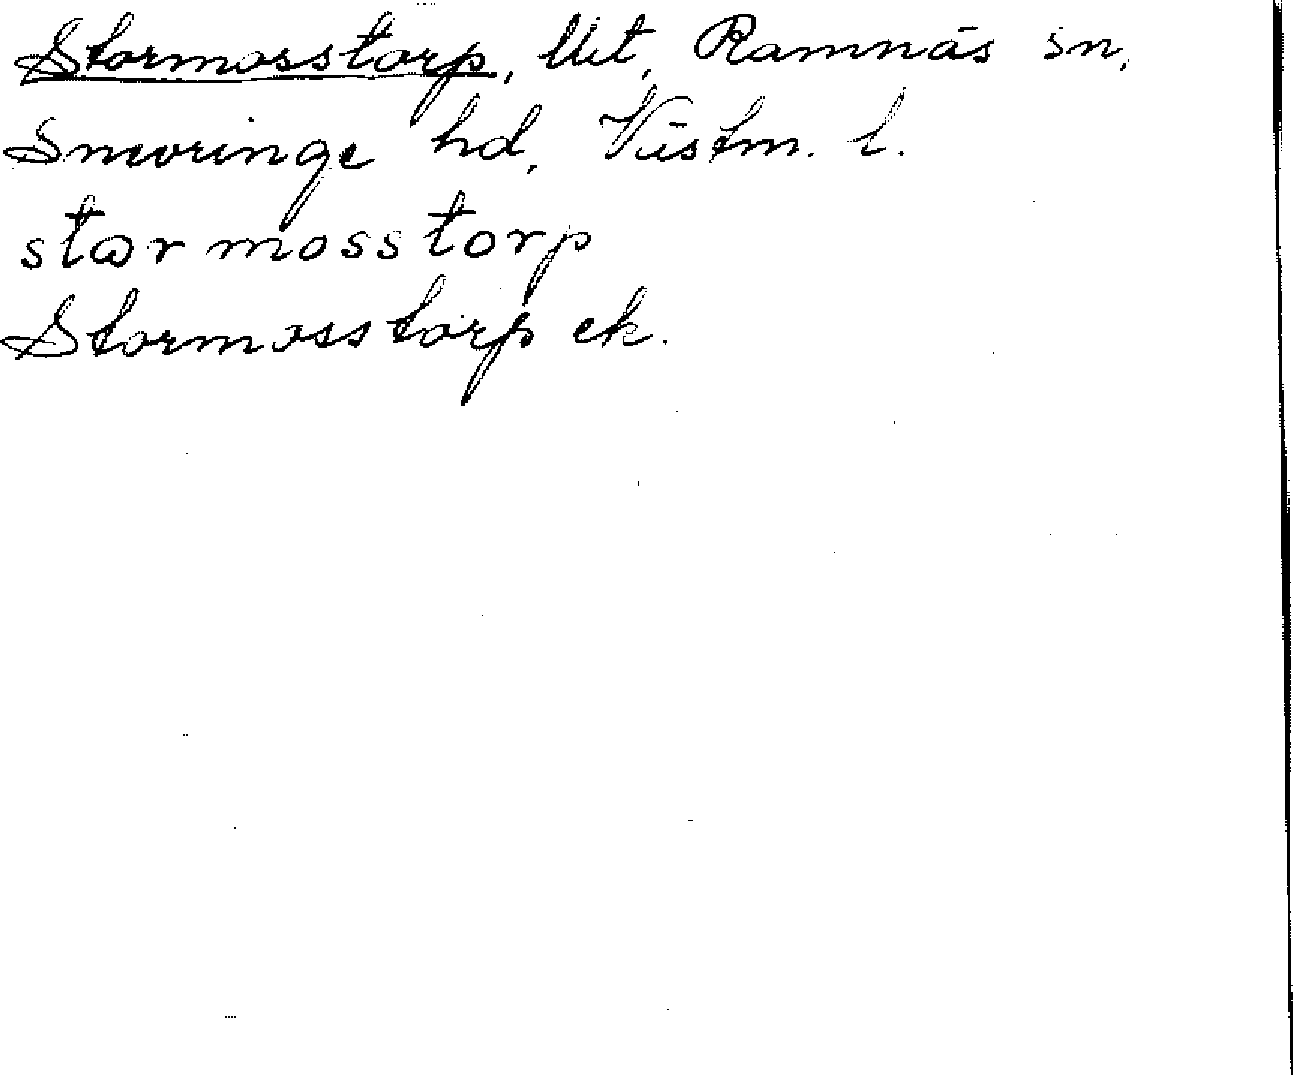 Stormosstorp, Utt, Ramnäs sn,
Snevringe hd, Västm. l.
stωrmosstorp
Stormosstorp ek.